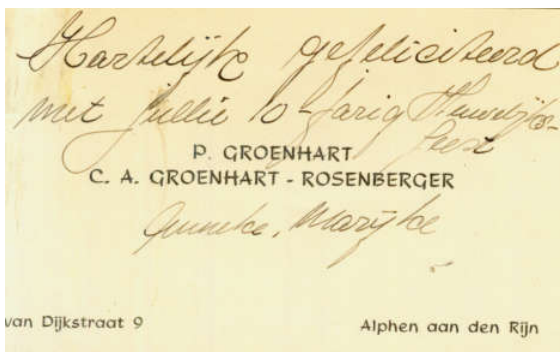 Hartelijk gefeliciteerd
met jullie 10-jarig Huwelijks-
feest
P. GROENHART
C. A. GROENHART - ROSENBERGER
Anneke, Marijke
van Dijkstraat 9
Alphen aan den Rijn